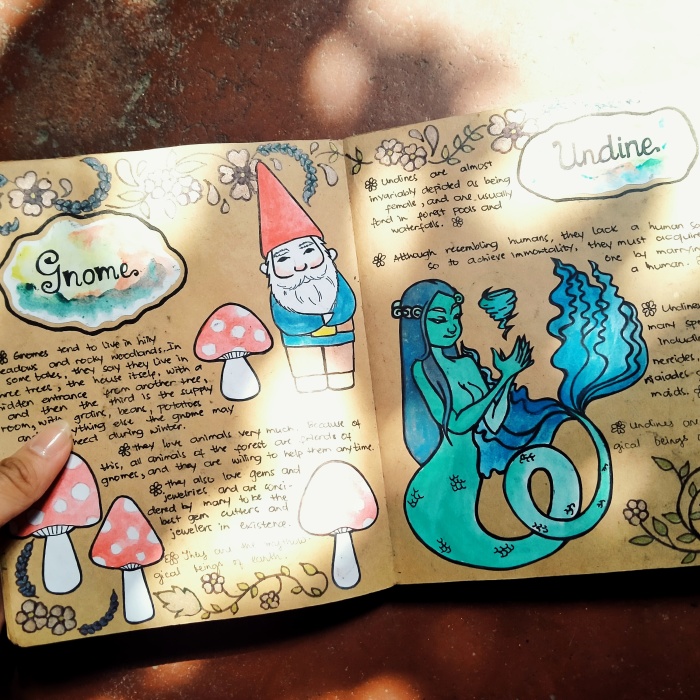 Gnome
Gnomes tend to live in hilly
meadows and rocky woodlands. In
some tales, they say they live in
three trees; the house itself, with a
hidden entrance from another tree,
and then the third is the supply
room, with grains, beans, potatoes
anything else the gnome may
need during winter.
they love animals very much. Because of
this, all animals of the forest are friends of
gnomes, and they are willing to help them anytime.
they also love gems and
jewelries and are consi-
dered by many to be the
best gem cutters and
jewelers in existence.
They are the
gical beings of earth.
Undine
Undines are almost
invariably depicted as being
female, and are usually
fond in forest pools and
waterfalls.
Although resembling humans, they lack a human
so to achieve immortality, they must acquire
one by
a human.
Undines
many
includi
nereides
Naiades
maids,
Undines are
gical beings